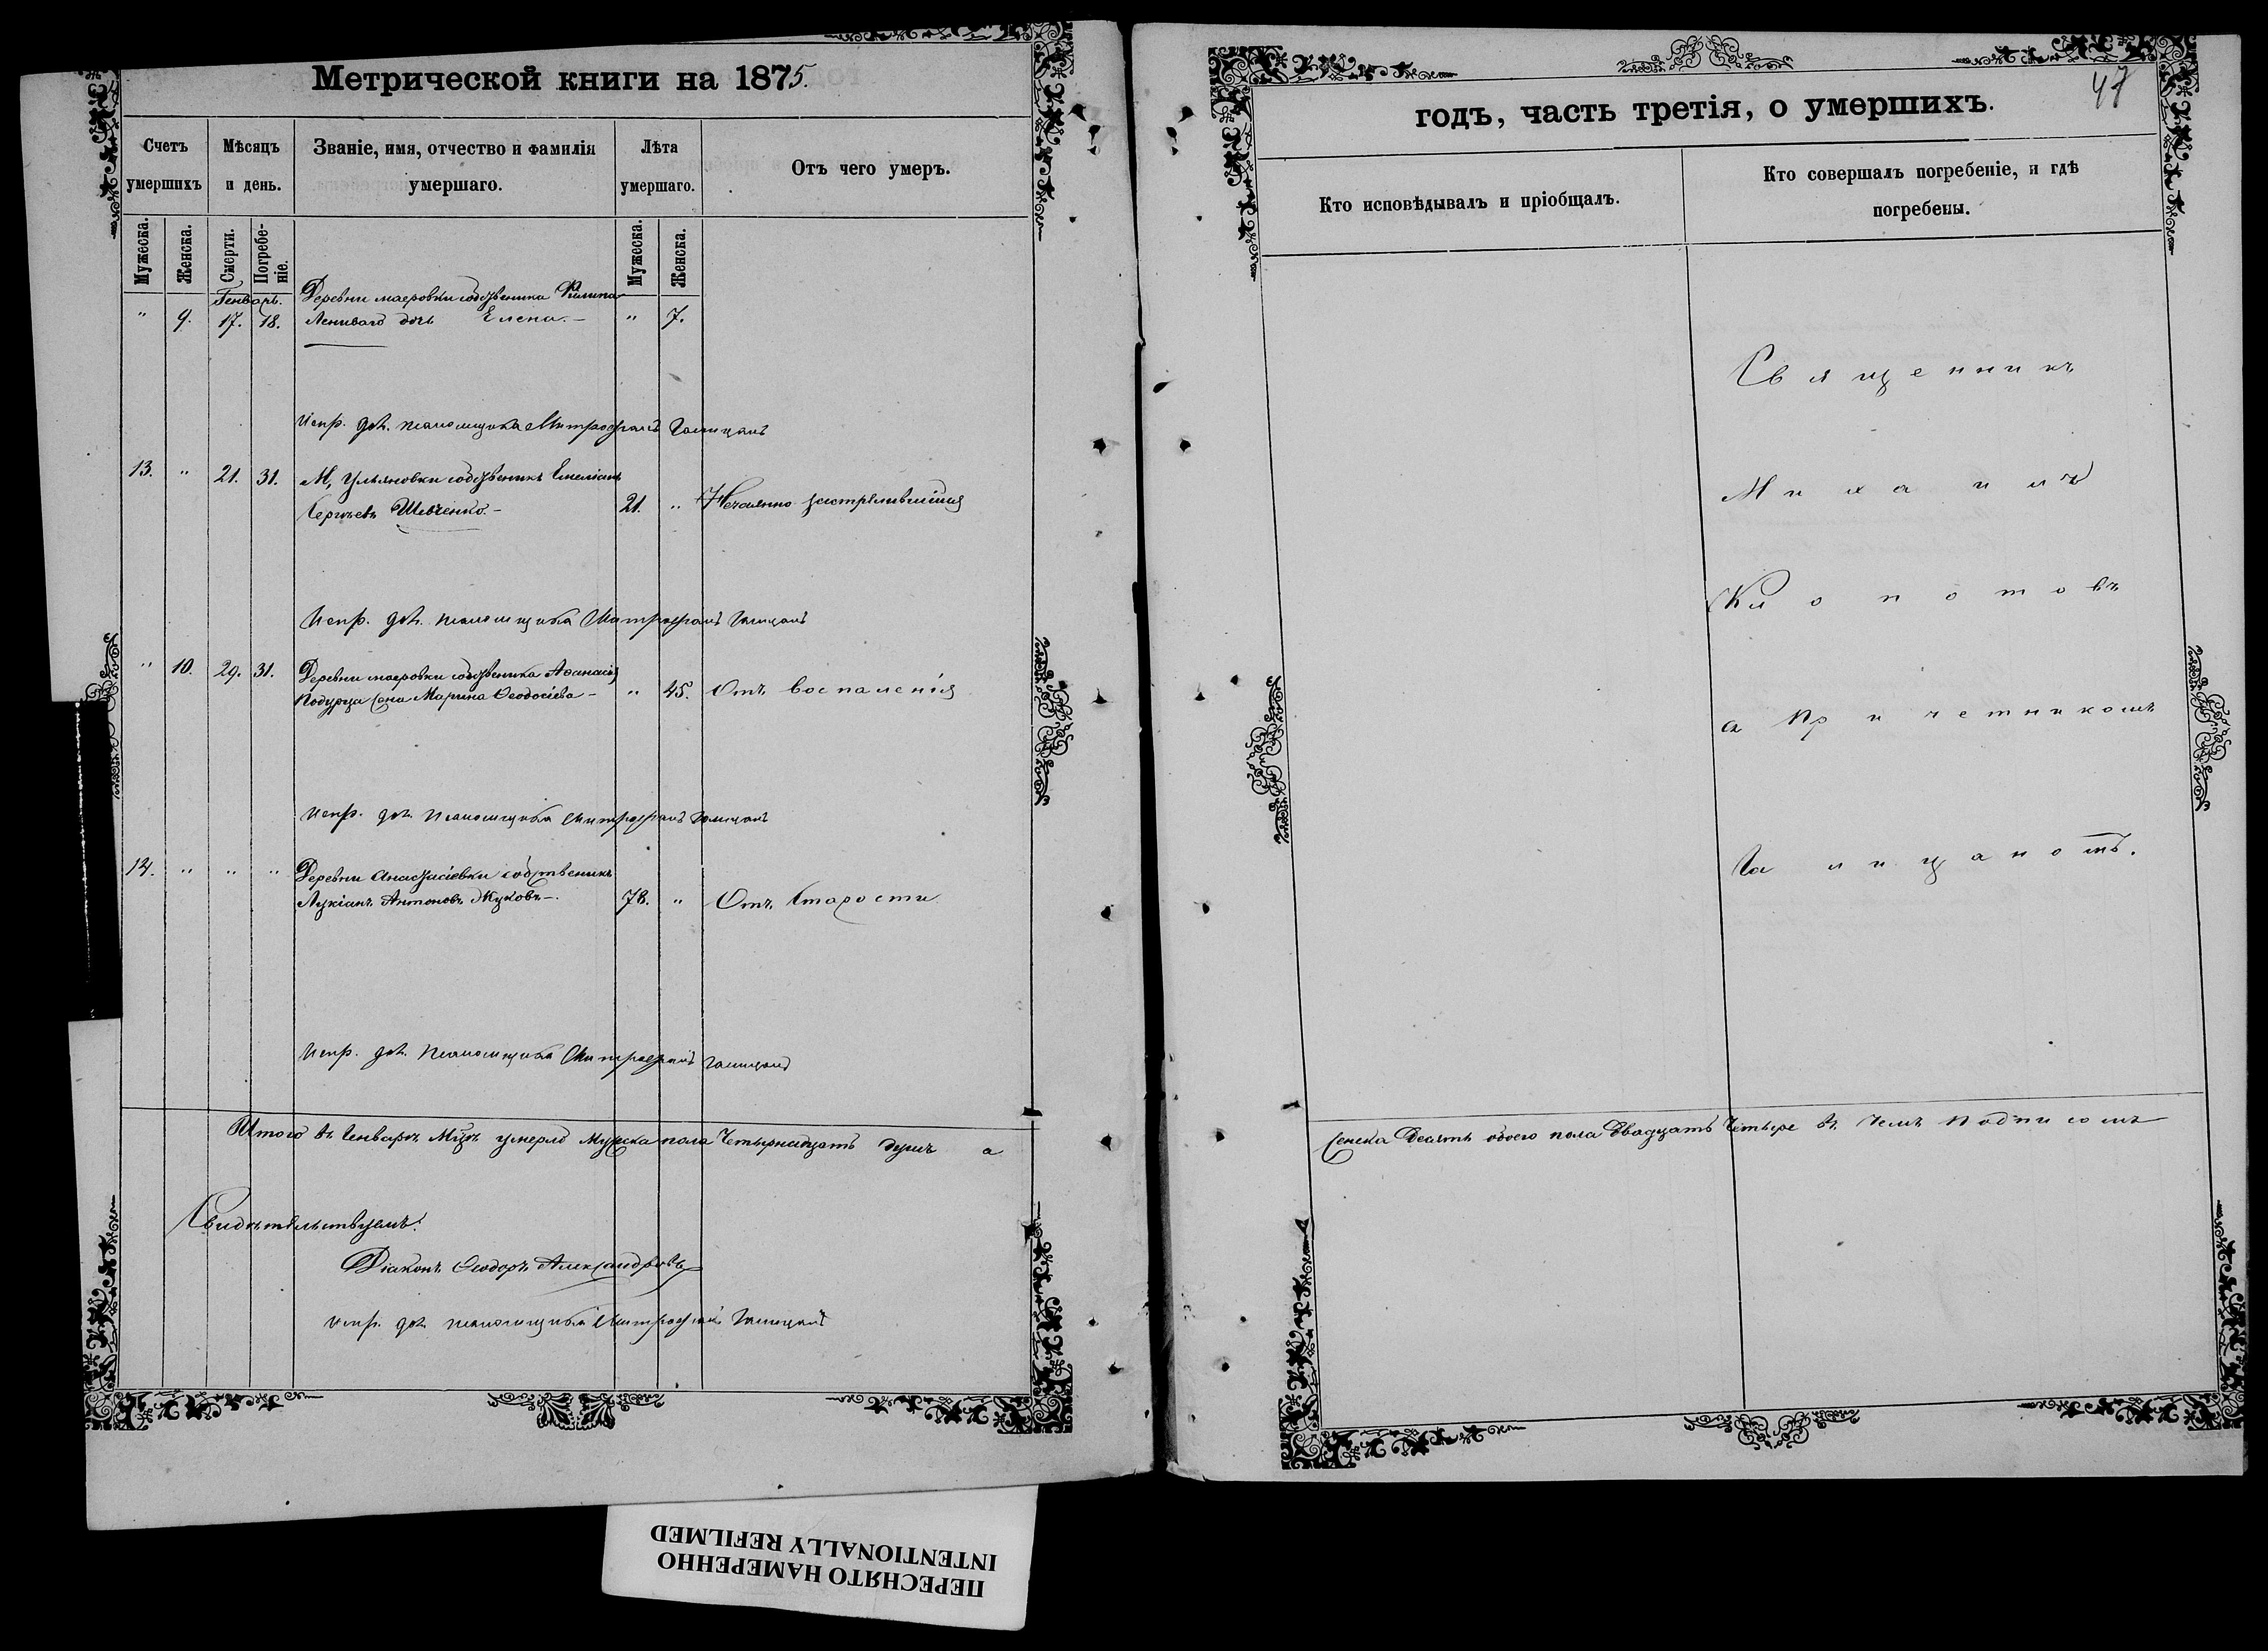 Метрической книги на 1875.
Счетъ умершихъ
Мѣсяцъ и день.
Званіе, имя, отчество и фамилія умершаго.
Лѣта умершаго.
Отъ чего умеръ.
Мужеска.
Женска.
Смерти.
Погребе-
ніе.
Мужеска.
Женска.
Генварь.
" 9. 17. 18. Деревни маеровки собственника Филипа
Лениваго дочь Елена.— " 7.
Испр. дол. псаломщика Митрофанъ Галицанъ
13. " 21. 31. М, Ульяновки собственникъ Емеліанъ
Сергѣевъ Шевченко.— 21. " Нечаянно застрѣлившійся
Испр. дол. псаломщика Митрофанъ Галицанъ
" 10. 29. 31. Деревни маеровки собственника Афанасія
жена Марина Ѳеодосіева— " 45. Отъ воспаленія
Испр. дол. псаломщика Митрофанъ Галицанъ
14. " " " Деревни Анастасіевки собственникъ
Лукіанъ Антоновъ Жуковъ—. 78. " Отъ старости
Испр. дол. псаломщика Митрофанъ Галицанъ
Итого въ Генварѣ Мцѣ умерло Мужска пола Четырнадцать душъ а
Свидѣтельствуемъ:
Діаконъ Ѳеодоръ Александровъ
испр. дол. псаломщика Митрофанъ Галицанъ
47
годъ, часть третія, о умершихъ.
Кто исповѣдывалъ и пріобщалъ.
Кто совершалъ погребеніе, и гдѣ
погребены.
Священникъ
Михаилъ
Клопотовъ
съ Причетникомъ
Галицаномъ.
женска Десять обоего пола Двадцать Четыре въ чемъ подписомъ
ПЕРЕСНЯТО НАМЕРЕННО
INTENTIONALLY REFILMED